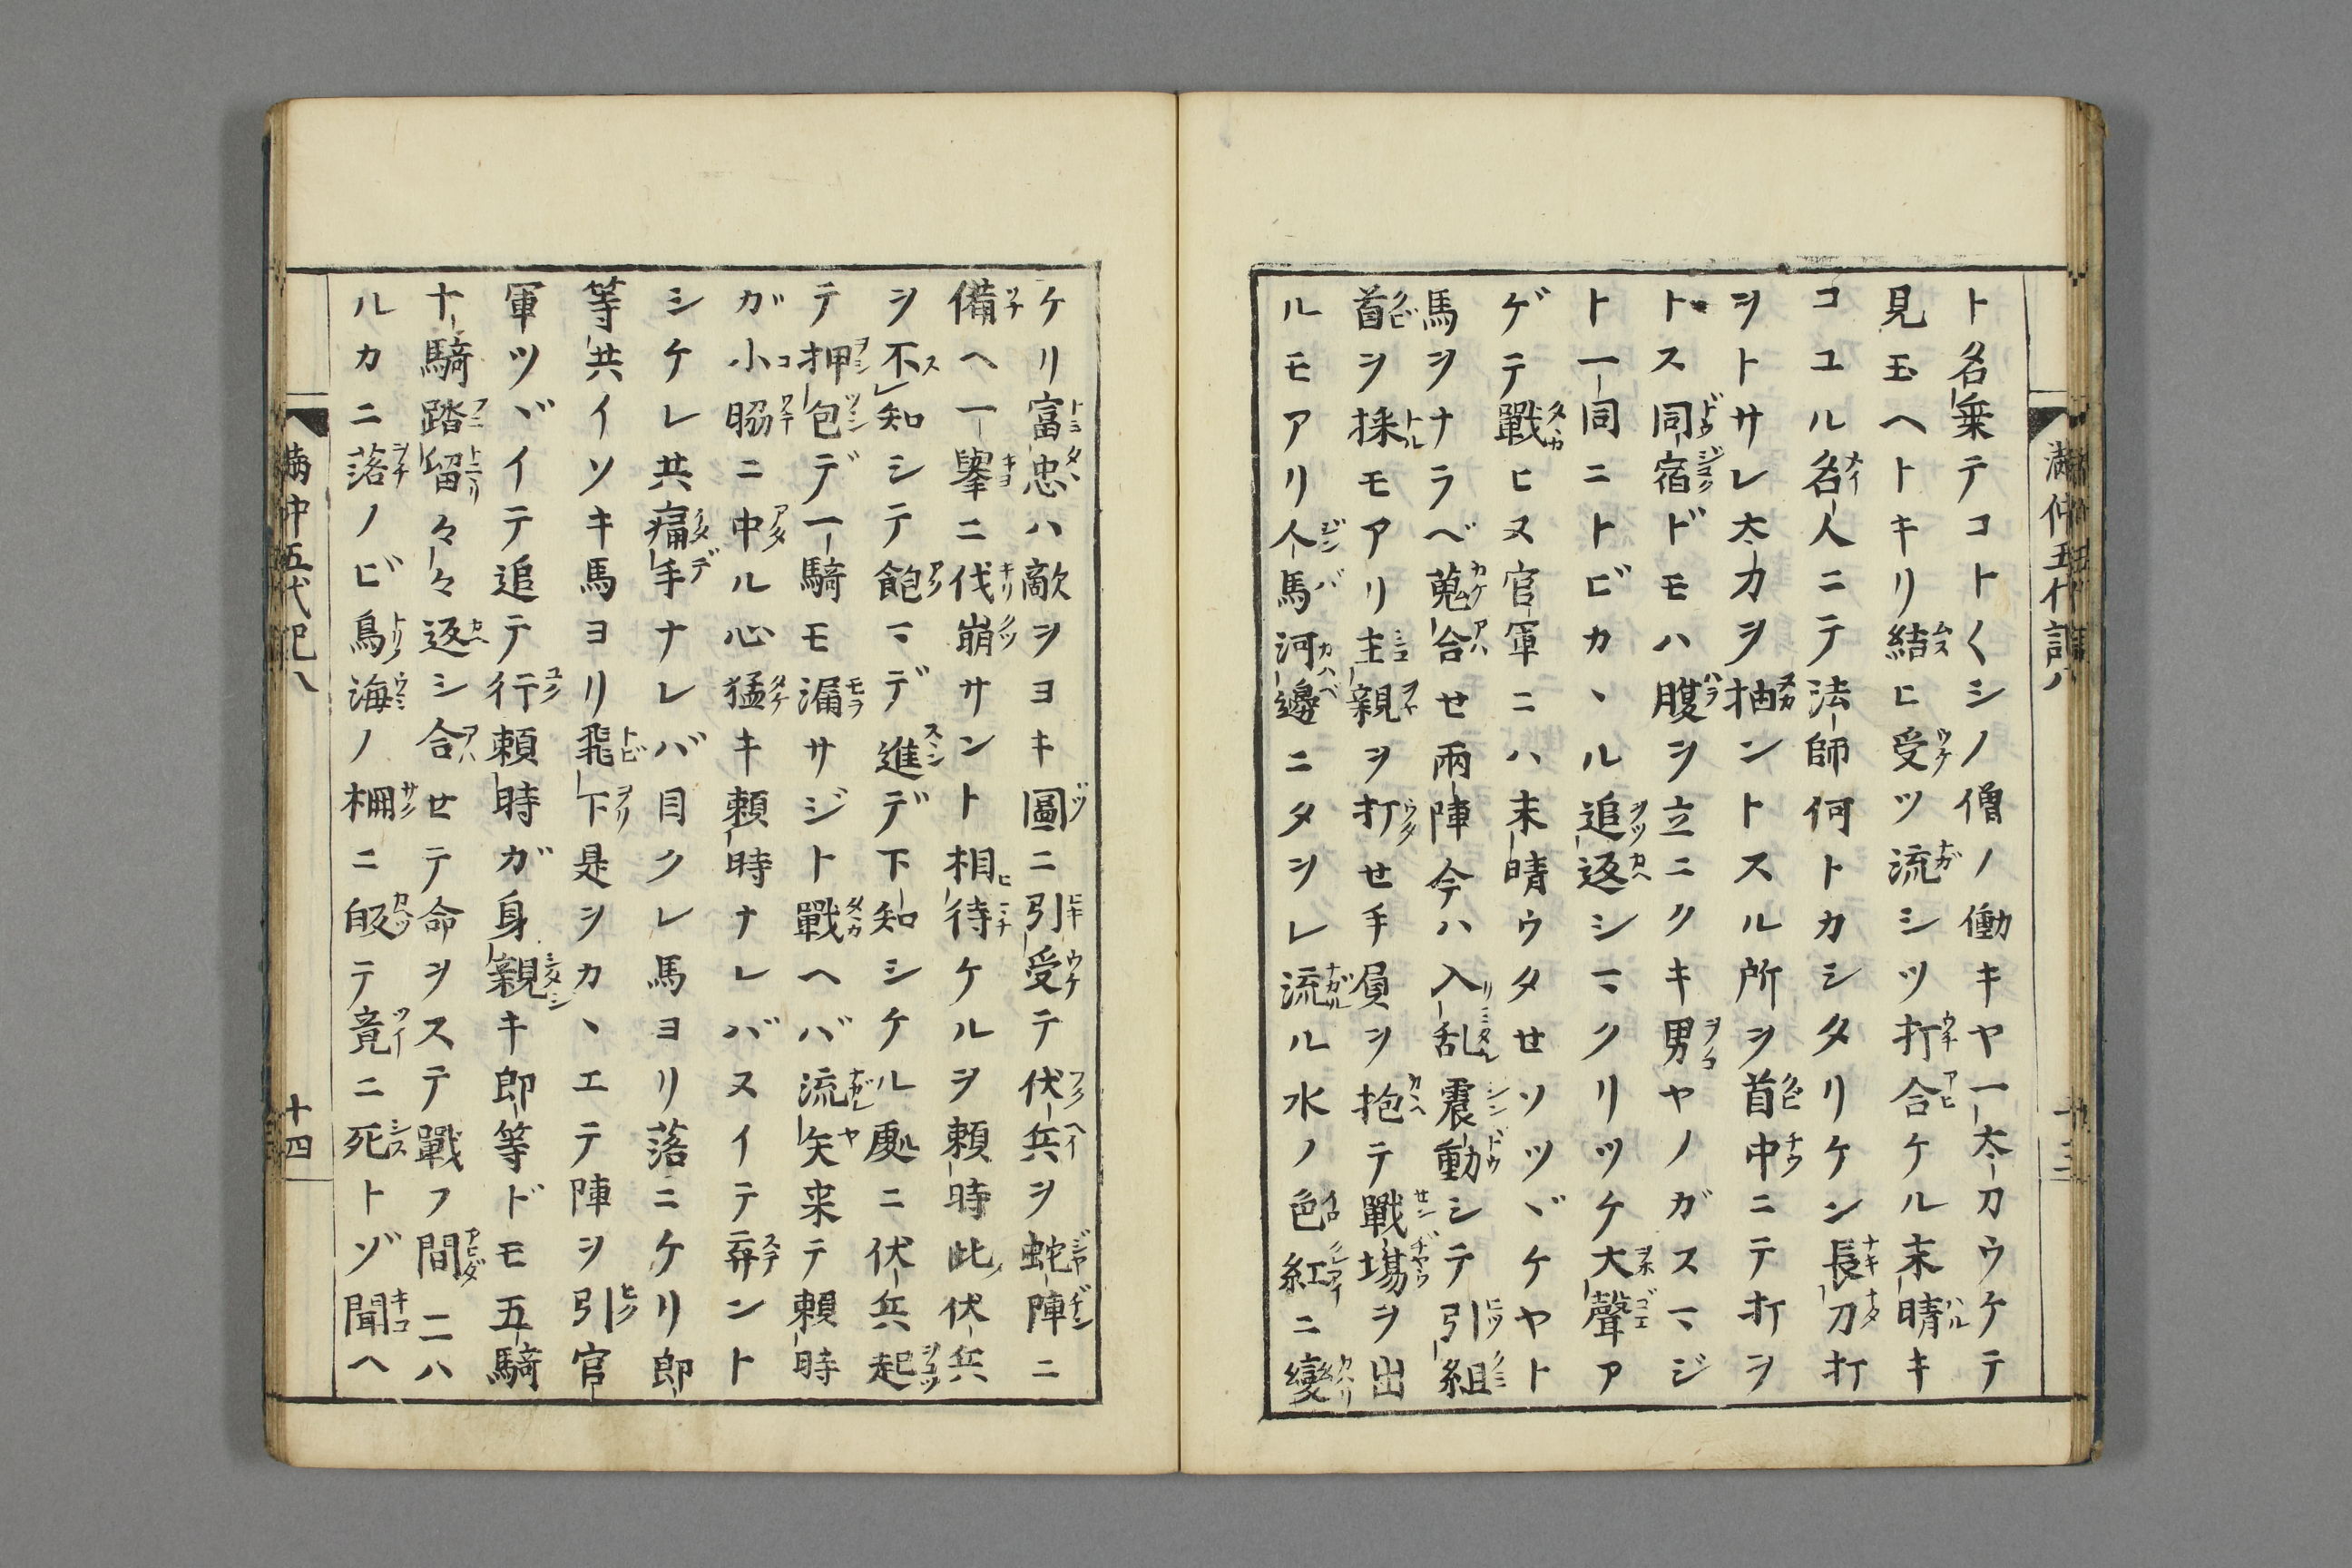 ト名乗テコトくシノ僧ノ働キヤ一太刀ウケテ
見玉ヘトキリ結ヒ受ツ流シツ打合ケル末晴キ
コユル名人ニテ法師何トカシタリケン長刀打
ヲトサレ太刀ヲ抽ントスル所ヲ首中ニテ打ヲ
トス同宿ドモハ腹ヲ立ニクキ男ヤノガスマジ
ト一同ニトビカヽル追返シマクリツケ大聲ア
ゲテ戰ヒヌ官軍ニハ末晴ウタせソツヾケヤト
馬ヲナラベ蒐合せ兩陣今ハ入乱震動シテ引組
首ヲ採モアリ主親ヲ打せ手屓ヲ抱テ戰場ヲ出
ルモアリ人馬河邊ニタヲレ流ル水ノ色紅ニ變
満仲五代記八
十三
ケリ富忠ハ敵ヲヨキ圖ニ引受テ伏兵ヲ蛇陣ニ
備ヘ一擧ニ伐崩サント相待ケルヲ頼時此伏兵
ヲ不知シテ飽マデ進デ下知シケル處ニ伏兵起
テ押包デ一騎モ漏サジト戰ヘバ流矢来テ頼時
ガ小脇ニ中ル心猛キ頼時ナレバスイテ弃ント
シケレ共痛手ナレバ目クレ馬ヨリ落ニケリ郎
等共イソキ馬ヨリ飛下是ヲカヽエテ陣ヲ引官
軍ツヾイテ追テ行頼時ガ身親キ郎等ドモ五騎
十騎踏留々々返シ合せテ命ヲステ戰フ間二ハ
ルカニ落ノビ鳥海ノ柵ニ皈テ竟ニ死トゾ聞ヘ
満仲五代記八
十四